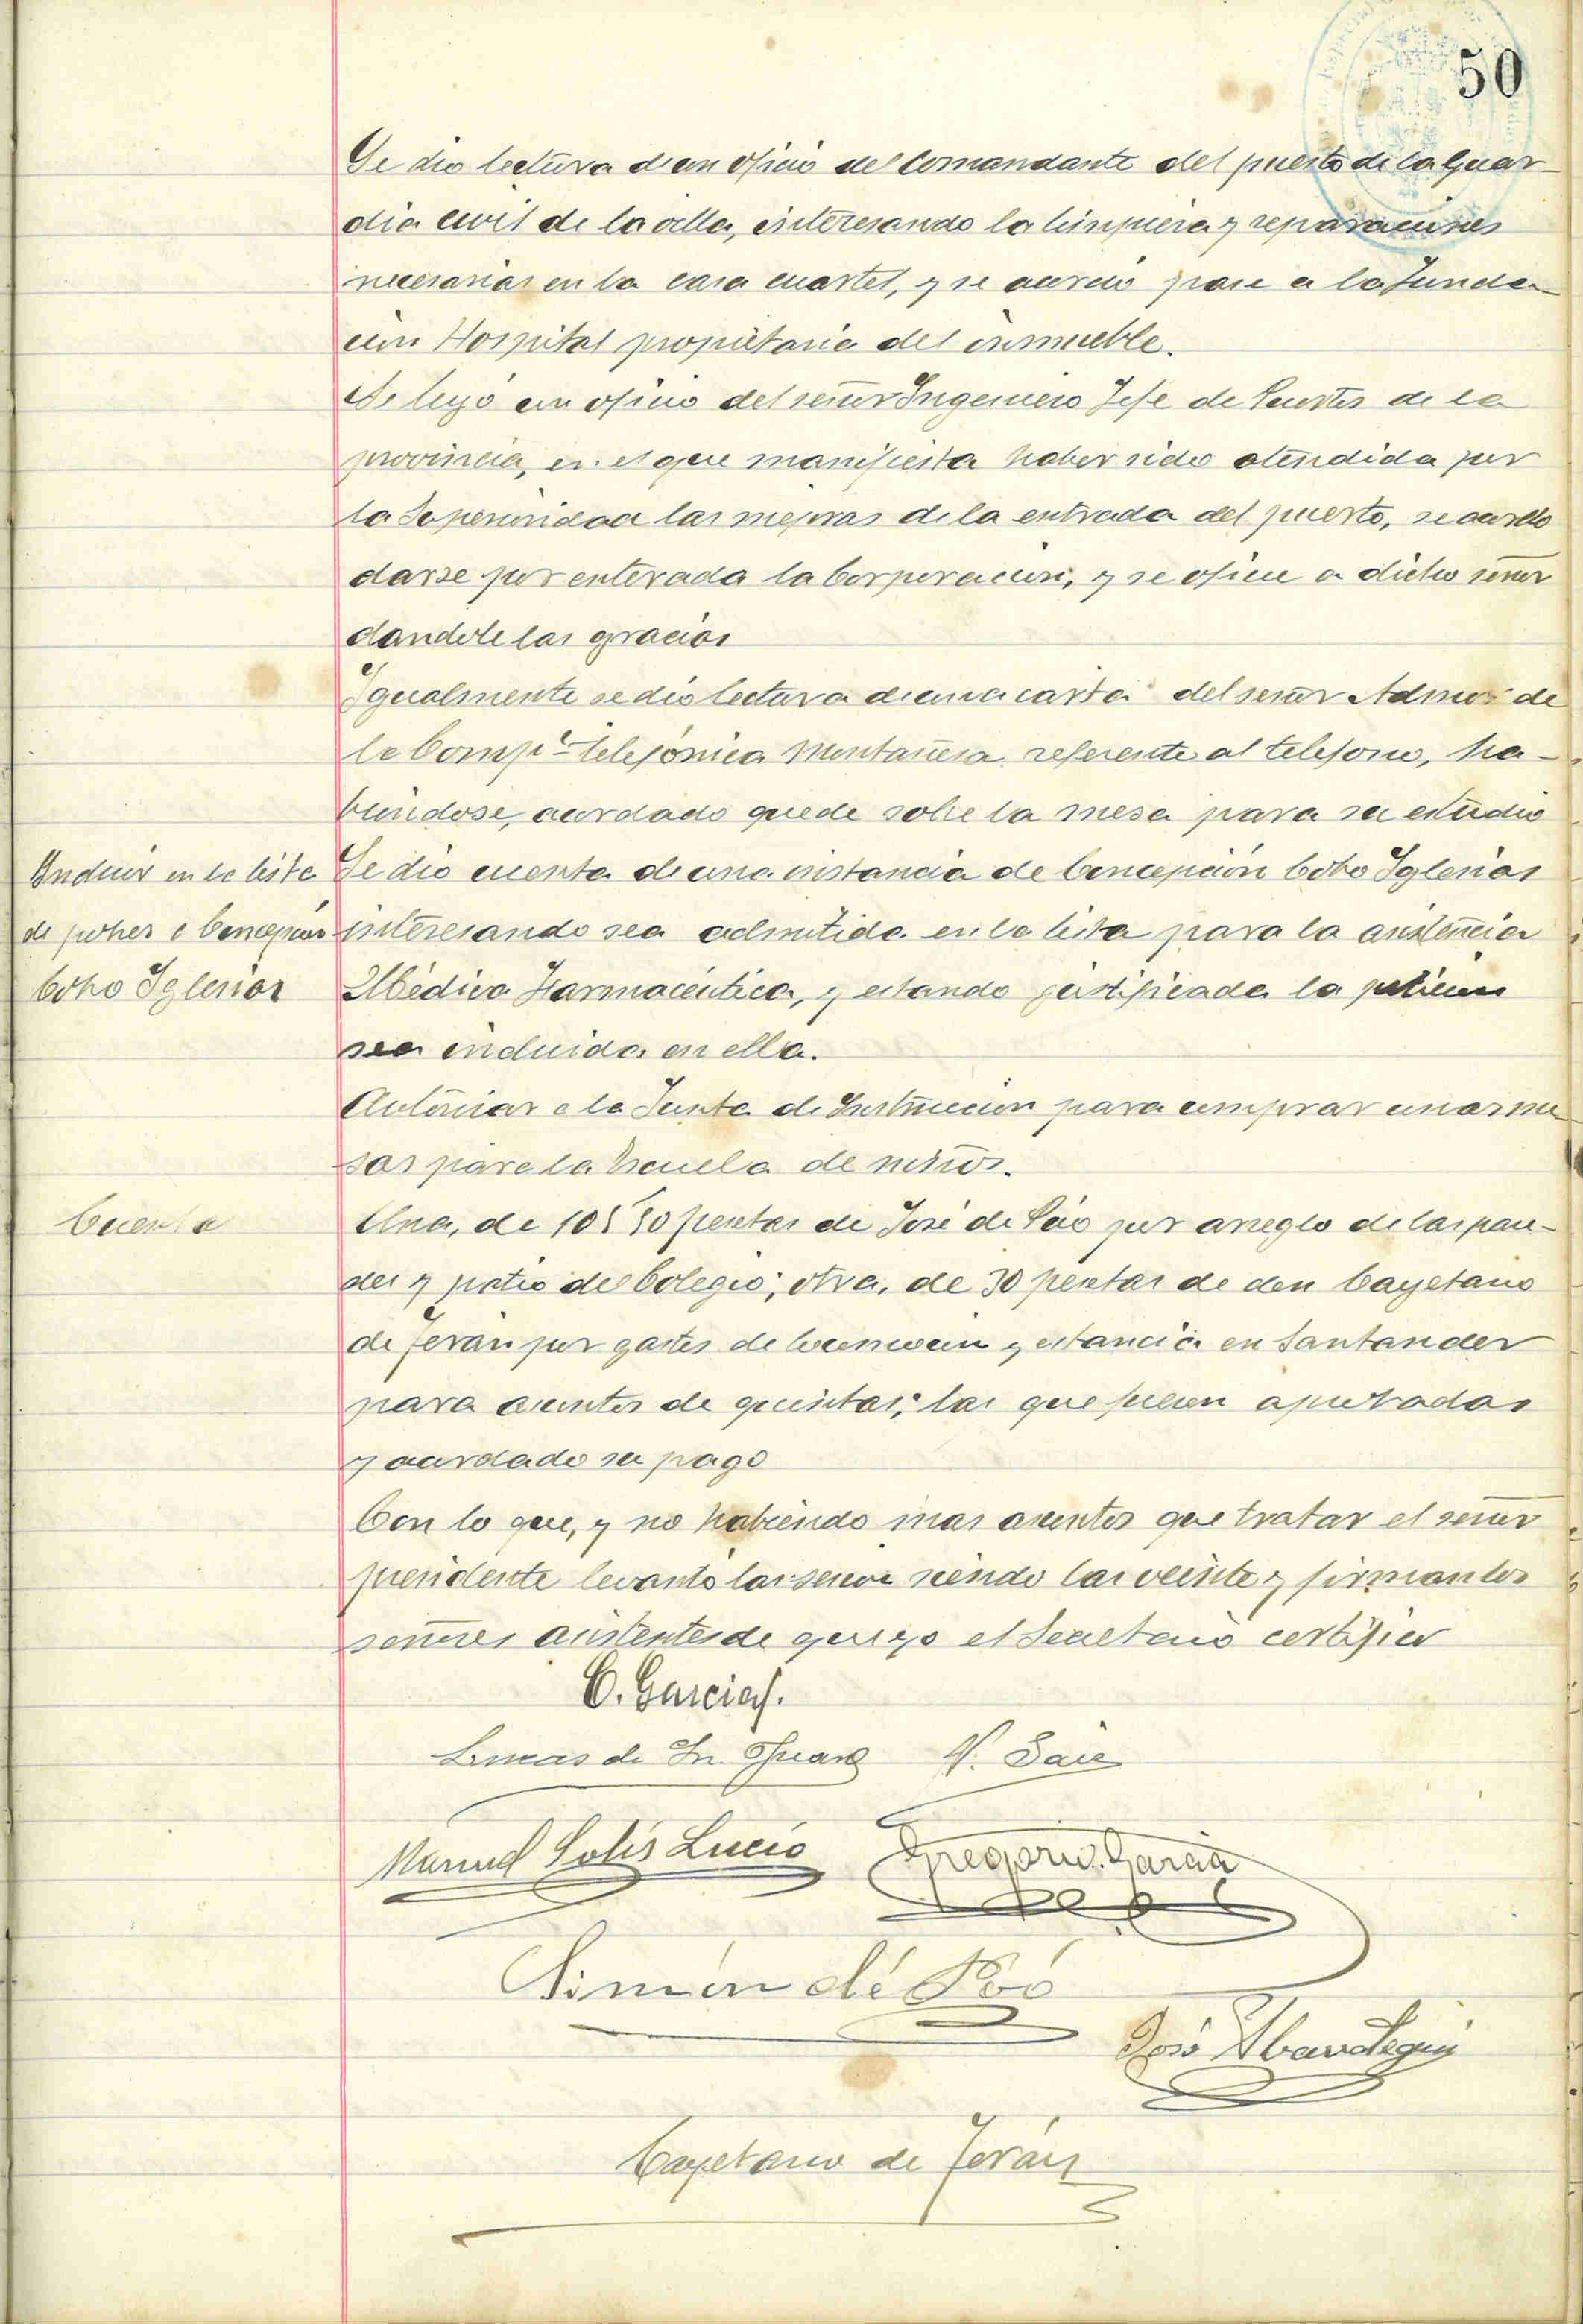 50
Se dio lectura d'un oficio del Comandante del puesto de la Guar-
dia civil de la villa, interesando la limpieza y reparaciones
necesarias en la casa cuartel, y se acordó pase a la Funda-
ción Hospital propietaria del inmueble.
Se leyó un oficio del señor Ingeniero Jefe de Puertos de la
provincia, en el que manifiesta haber sido atendida por
la Superioridad las mejoras de la entrada del puerto, se acordó
darse por enterada la Corporación, y se oficie a dicho señor
dandole las gracias
Igualmente se dio lectura de una carta del señor Admor de
la Compª telefónica Montañesa referente al telefono, ha-
biéndose, acordado quede sobre la mesa para su estudio
Incluir en la lista
de pobres a Concepción
Cobo Iglesias
Se dio cuenta de una instancia de Concepción Cobo Iglesias
interesando sea admitida en la lista para la asistencia
Médica Farmacéutica, y estando justificada la petición
sea incluida en ella.
Autorizar a la Junta de Instrucción para comprar unas me
sas para la Escuela de niños.
Cuenta
Una, de 105 50 pesetas de José de Póo por arreglo de las pare-
des y patio del Colegio; otra, de 30 pesetas de don Cayetano
de Terán por gastos de locomoción y estancia en Santander
para asuntos de quintas; las que fueron aprobadas
y acordado su pago
Con lo que, y no habiendo mas asuntos que tratar el señor
presidente levantó la sesion siendo las veinte y firman los
señores asistentes de que yo el Secretario certifico
C. Garcia
Lucas de Sn. Juan N. Saiz
Manuel Solís Lucio Gregorio Garcia
Simón de Póo
José Abascal
Cayetano de Terán